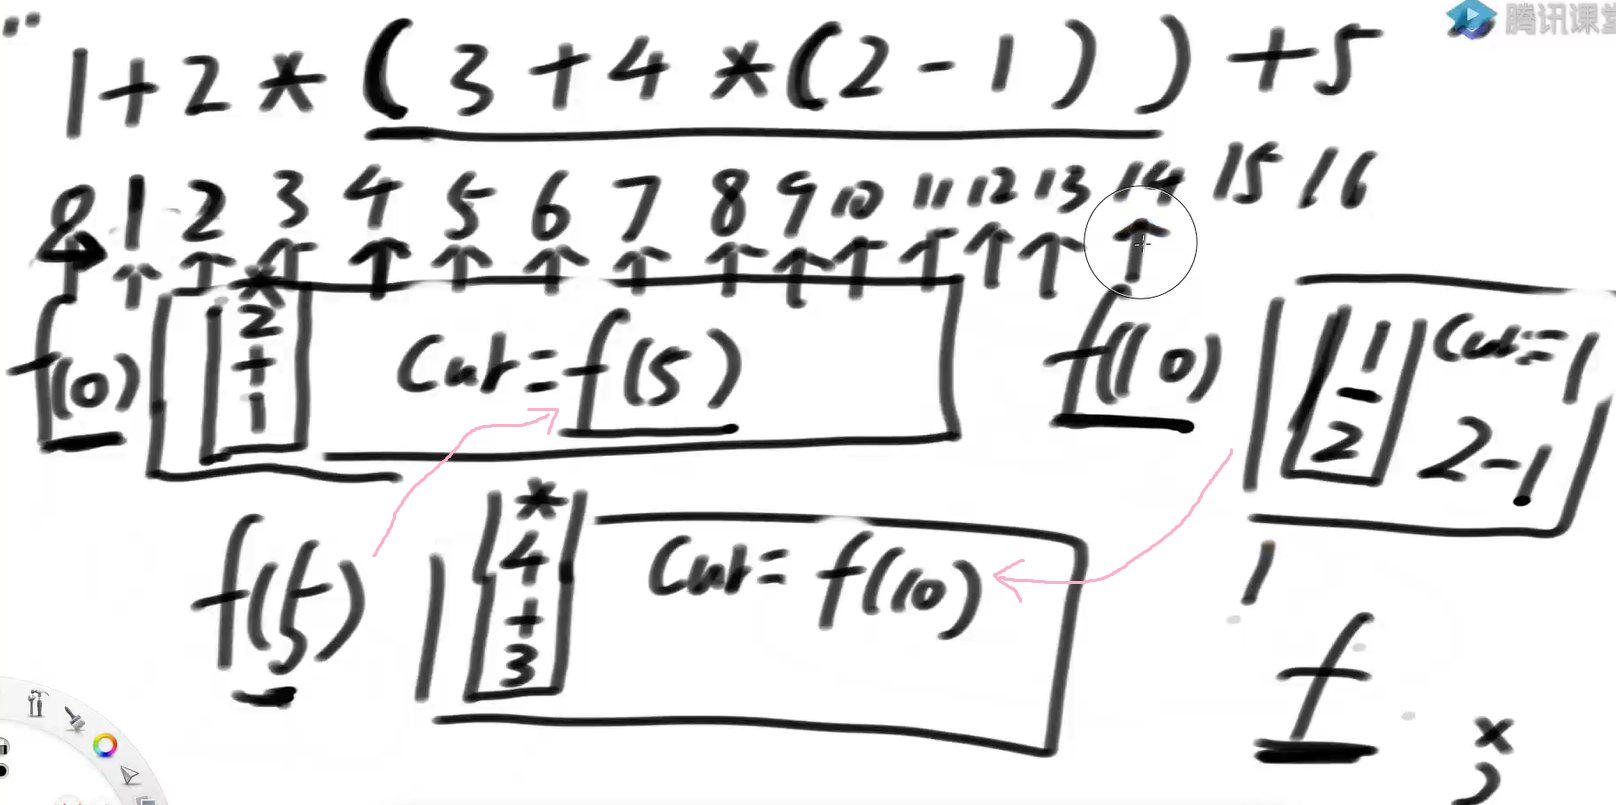 " 1+2*(3+4*(2-1))+5 "
腾讯课堂
0 1 2 3 4 5 6 7 8 9 10 11 12 13 14 15 16
f(0)
*
2
+
1
Cur=f(5)
f(10)
1
-
2
Cur=1
2-1
f(5)
*
4
+
3
Cur=f(10)
f